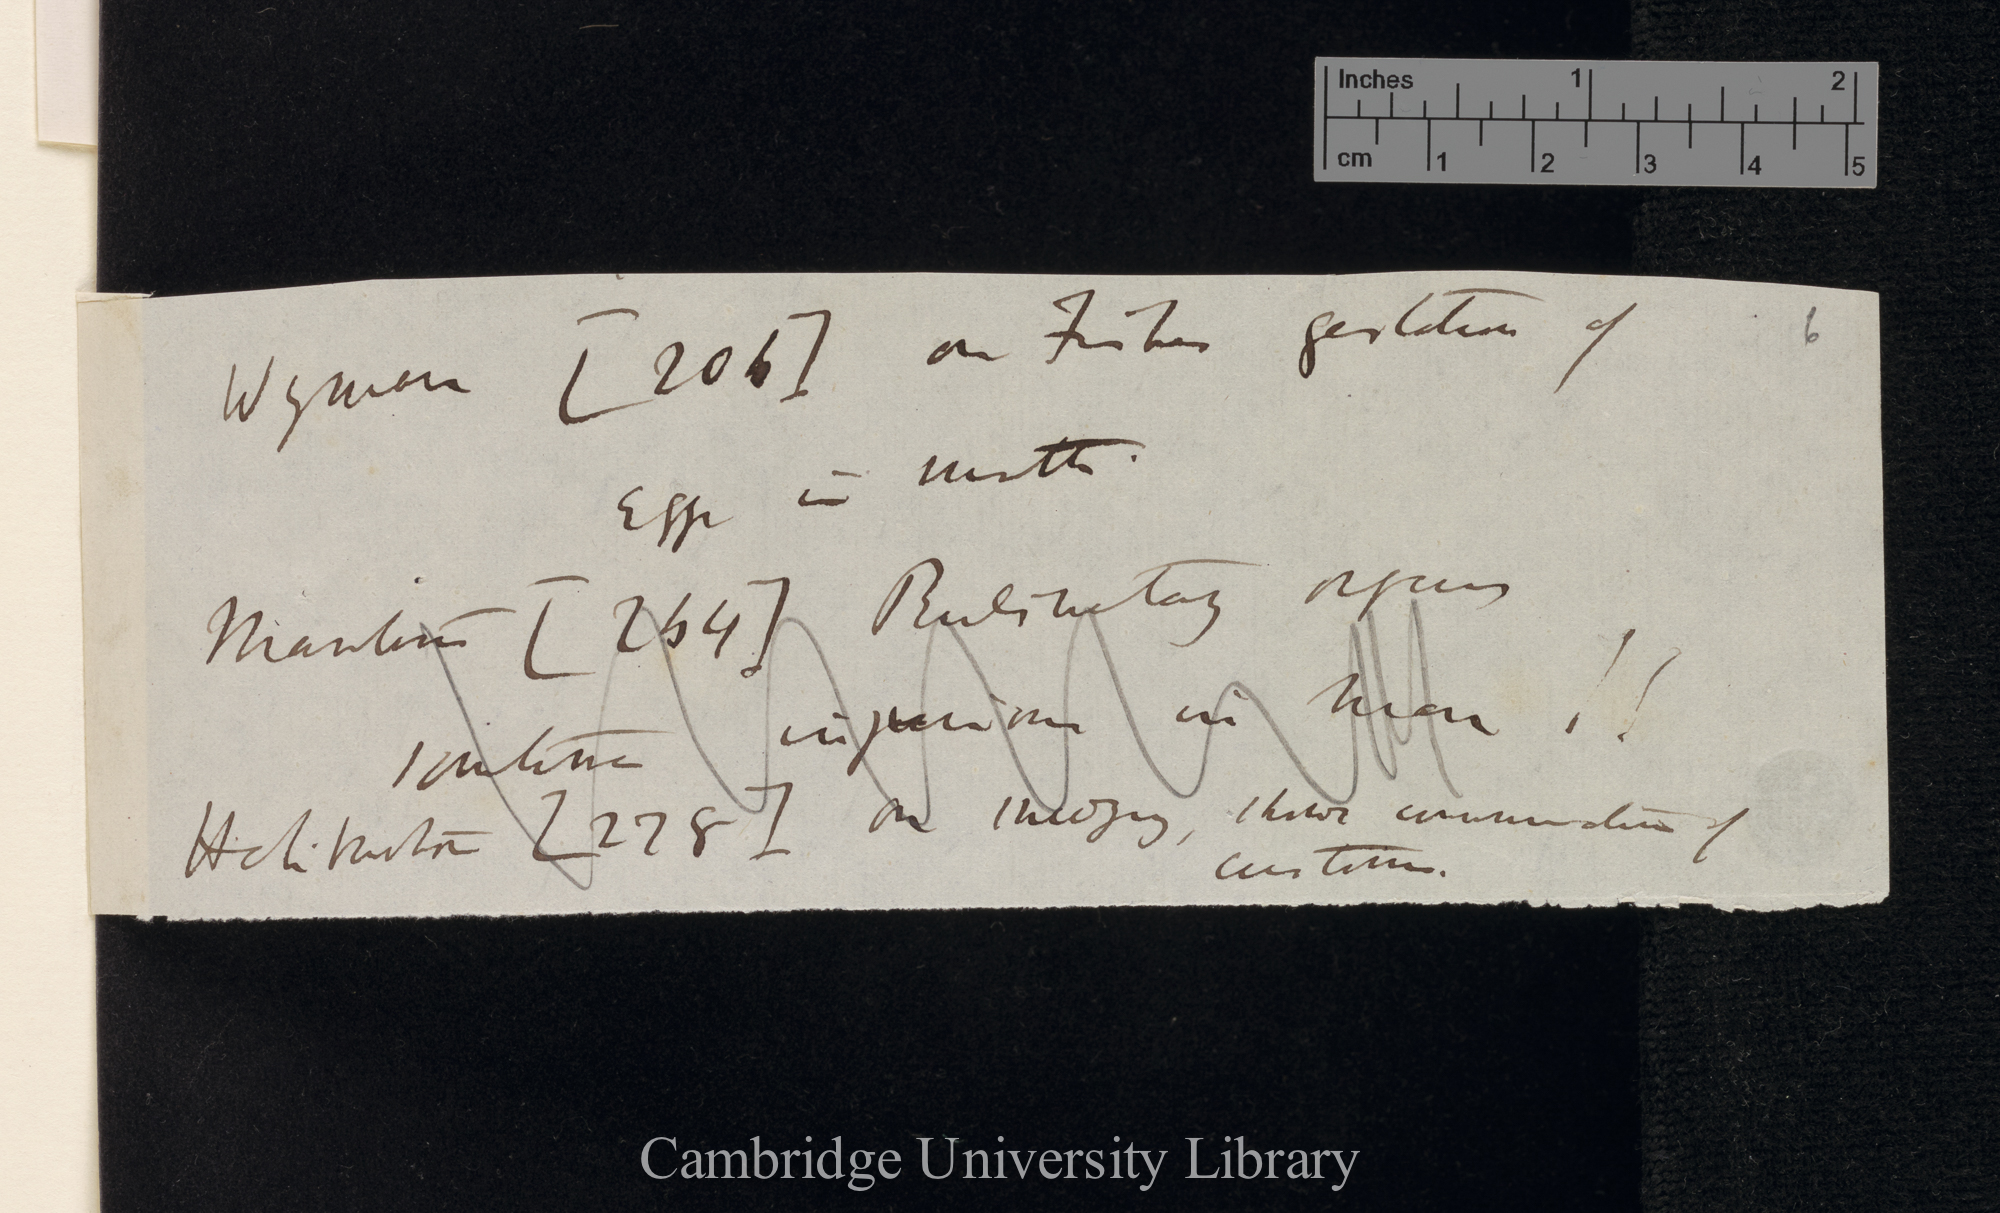 Inches 1 2
cm 1 2 3 4 5
6
Wyman [206] on Fishes gestation of
Eggs in mouth.
[264] Rudimentary organs
sometimes in man !!
[278] on sneezing, shows communition of
customs.
Cambridge University Library